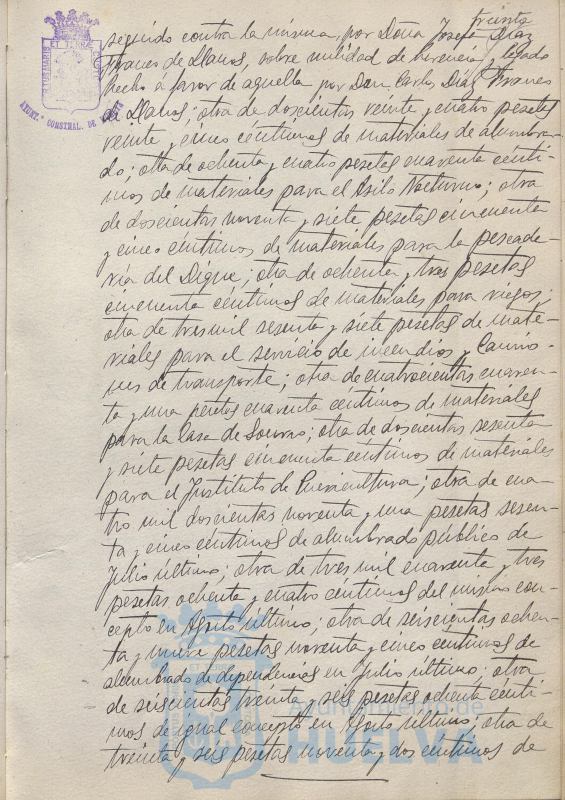 treinta
seguido contra la misma, por Doña Josefa Díaz
Franco de Llanos, sobre nulidad de herencia y legado
hecho a favor de aquella por Don Carlos Díaz Franco
de Llanos; otra de doscientas veinte y cuatro pesetas
veinte y cinco céntimos de materiales de alumbra-
do; otra de ochenta y cuatro pesetas cuarenta cénti-
mos de materiales para el Asilo Nocturno; otra
de doscientas noventa y siete pesetas cincuenta
y cinco céntimos de materiales para la pescade-
ría del Dique; otra de ochenta y tres pesetas
cincuenta céntimos de materiales para riegos;
otra de tres mil sesenta y siete pesetas de mate-
riales para el servicio de incendios y Camio-
nes de transporte; otra de cuatrocientas cuaren-
ta y una pesetas cuarenta céntimos de materiales
para la Casa de Socorro; otra de doscientas sesenta
y siete pesetas cincuenta céntimos de materiales
para el Instituto de Puericultura; otra de cua-
tro mil doscientas noventa y una pesetas sesen-
ta y cinco céntimos de alumbrado público de
Julio último; otra de tres mil cuarenta y tres
pesetas ochenta y cuatro céntimos del mismo con-
cepto en Agosto último; otra de seiscientas ochen-
ta y nueve pesetas noventa y cinco céntimos de
alumbrado de dependencias en Julio último; otra
de seiscientas treinta y seis pesetas ochenta cénti-
mos de igual concepto en Agosto último; otra de
treinta y seis pesetas noventa y dos céntimos de
AYUNT. CONSTNAL. DE HUELVA
ayuntamiento de
HUELVA